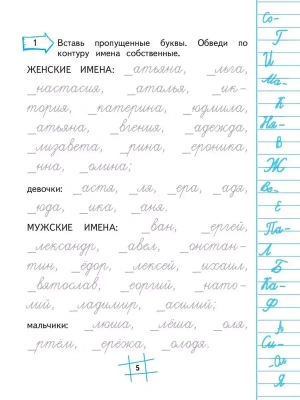 1 Вставь пропущенные буквы. Обведи по
контуру имена собственные.
ЖЕНСКИЕ ИМЕНА: _атьяна, _льга,
_настасия, _аталья, _ик-
тория, _катерина, _юдмила,
_атьяна, _вгения, _адежда,
_лизавета, _рина, _ероника,
_нна, _олина;
девочки: _астя, _ля, _ера, _адя,
_юда, _ика, _аня.
МУЖСКИЕ ИМЕНА: _ван, _ергей,
_лександр, _авел, _онстан-
тин, _ёдор, _лексей, _ихаил,
_вятослав, _еоргий, _нато-
лий, _ладимир, _асилий;
мальчики: _люша, _лёша, _оля,
_ртём, _ерёжа, _олодя.
5
Со-
Г
И
Ма-
К
Ня-
В
Ж
Ве-
Е
Па-
Л
Б
Ка-
Ф
Си-
Оля
Я